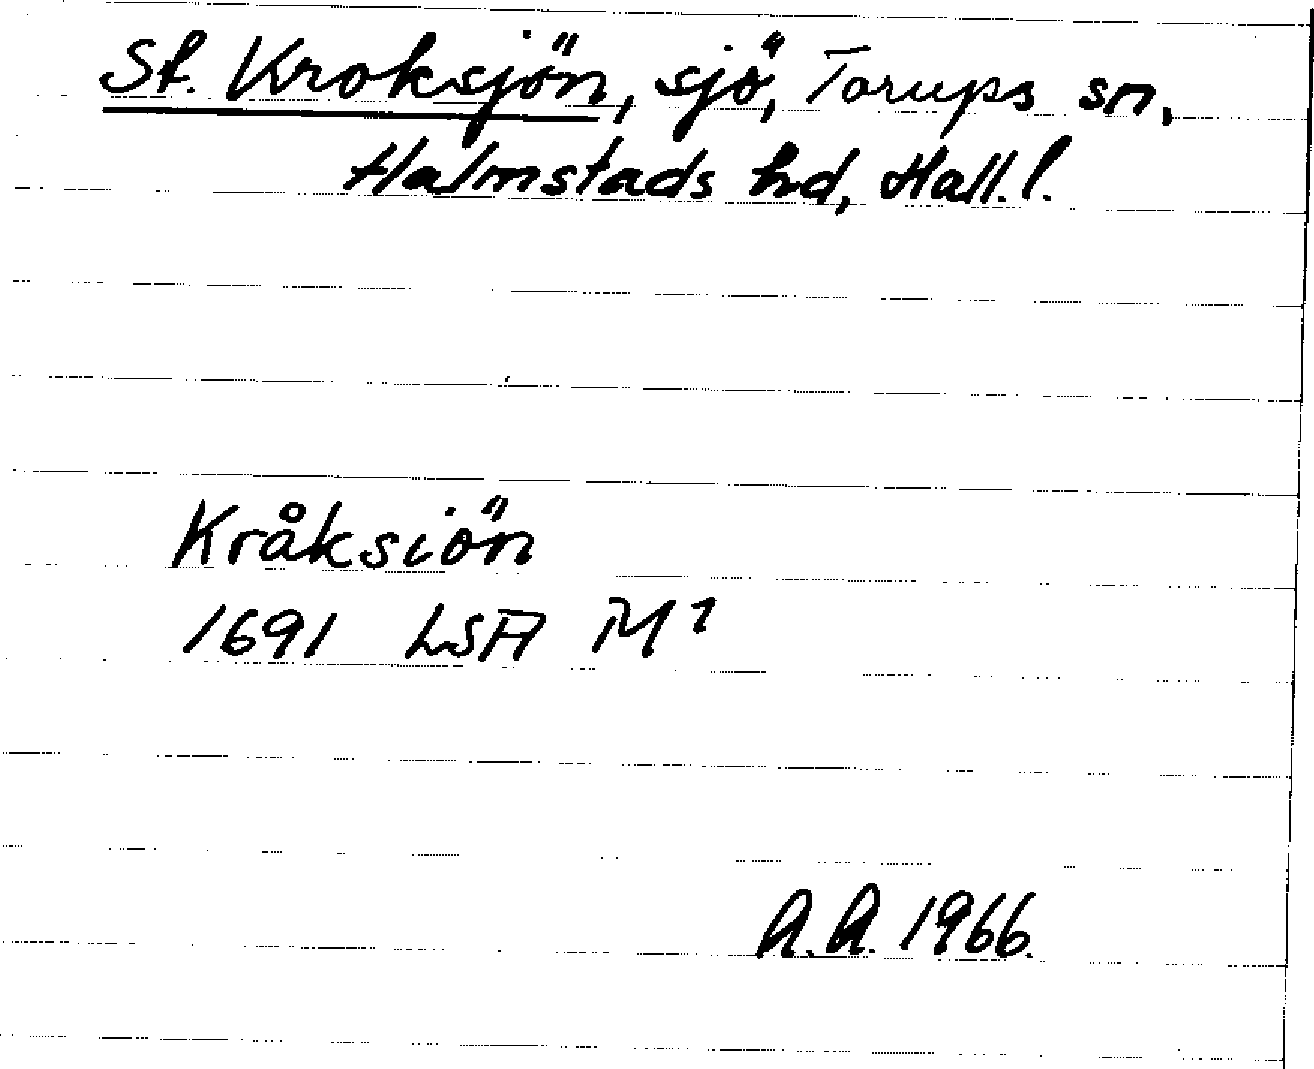 St. Kroksjön, sjö, Torups sn,
Halmstads hd, Hall. l.
Kråksiön
1691 LSA M1
A.A. 1966.